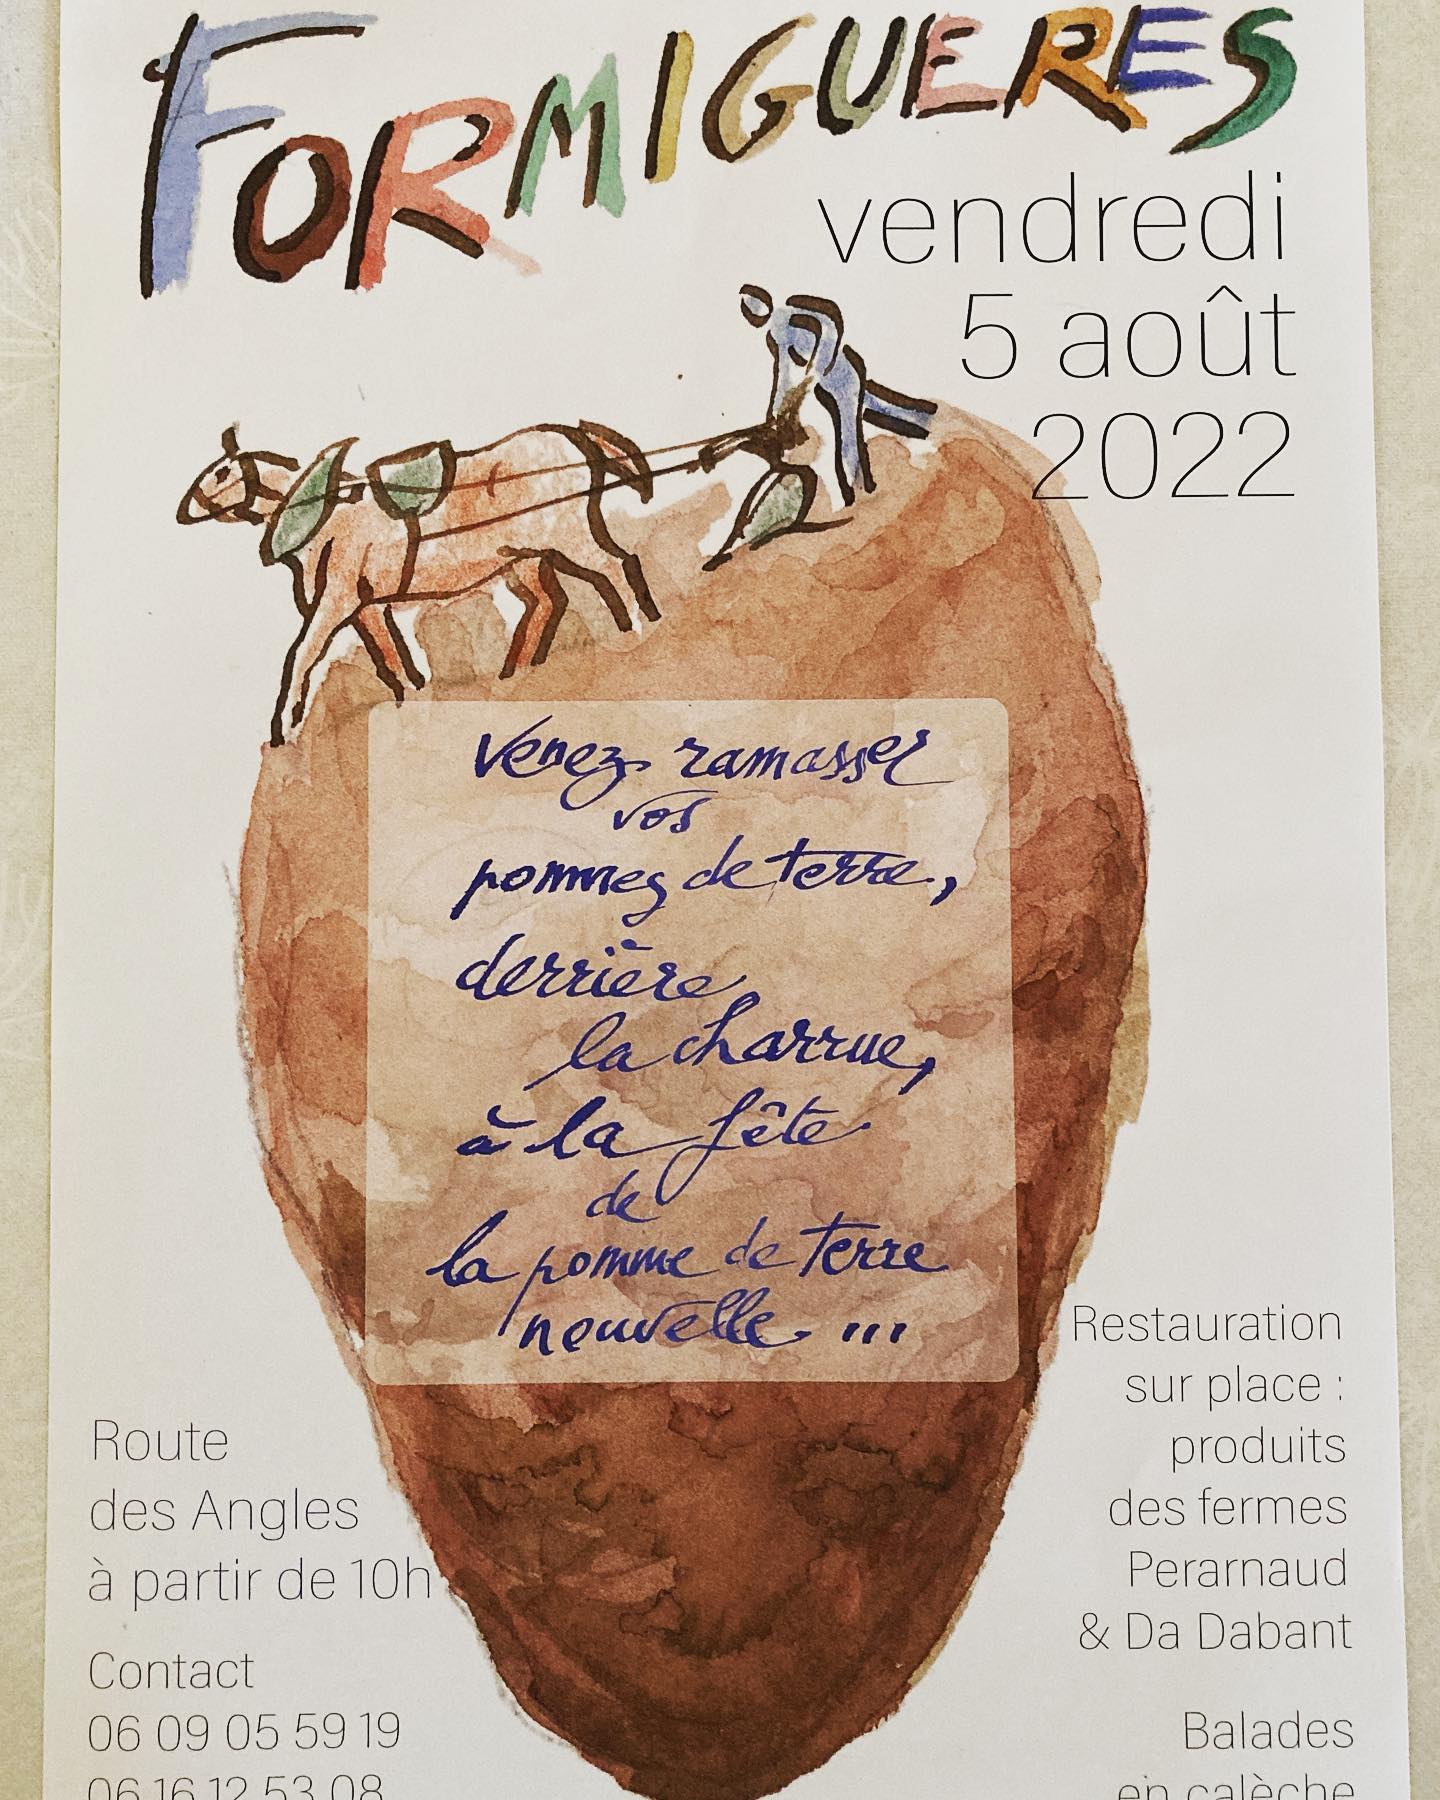 FORMIGUERES
vendredi
5 août
2022
Venez ramasser
vos
pommes de terre,
derrière
la charrue,
à la fête
de
la pomme de terre
nouvelle ...
Route
des Angles
à partir de 10h
Contact
06 09 05 59 19
06 16 12 53 08
Restauration
sur place :
produits
des fermes
Perarnaud
& Da Dabant
Balades
en calèche